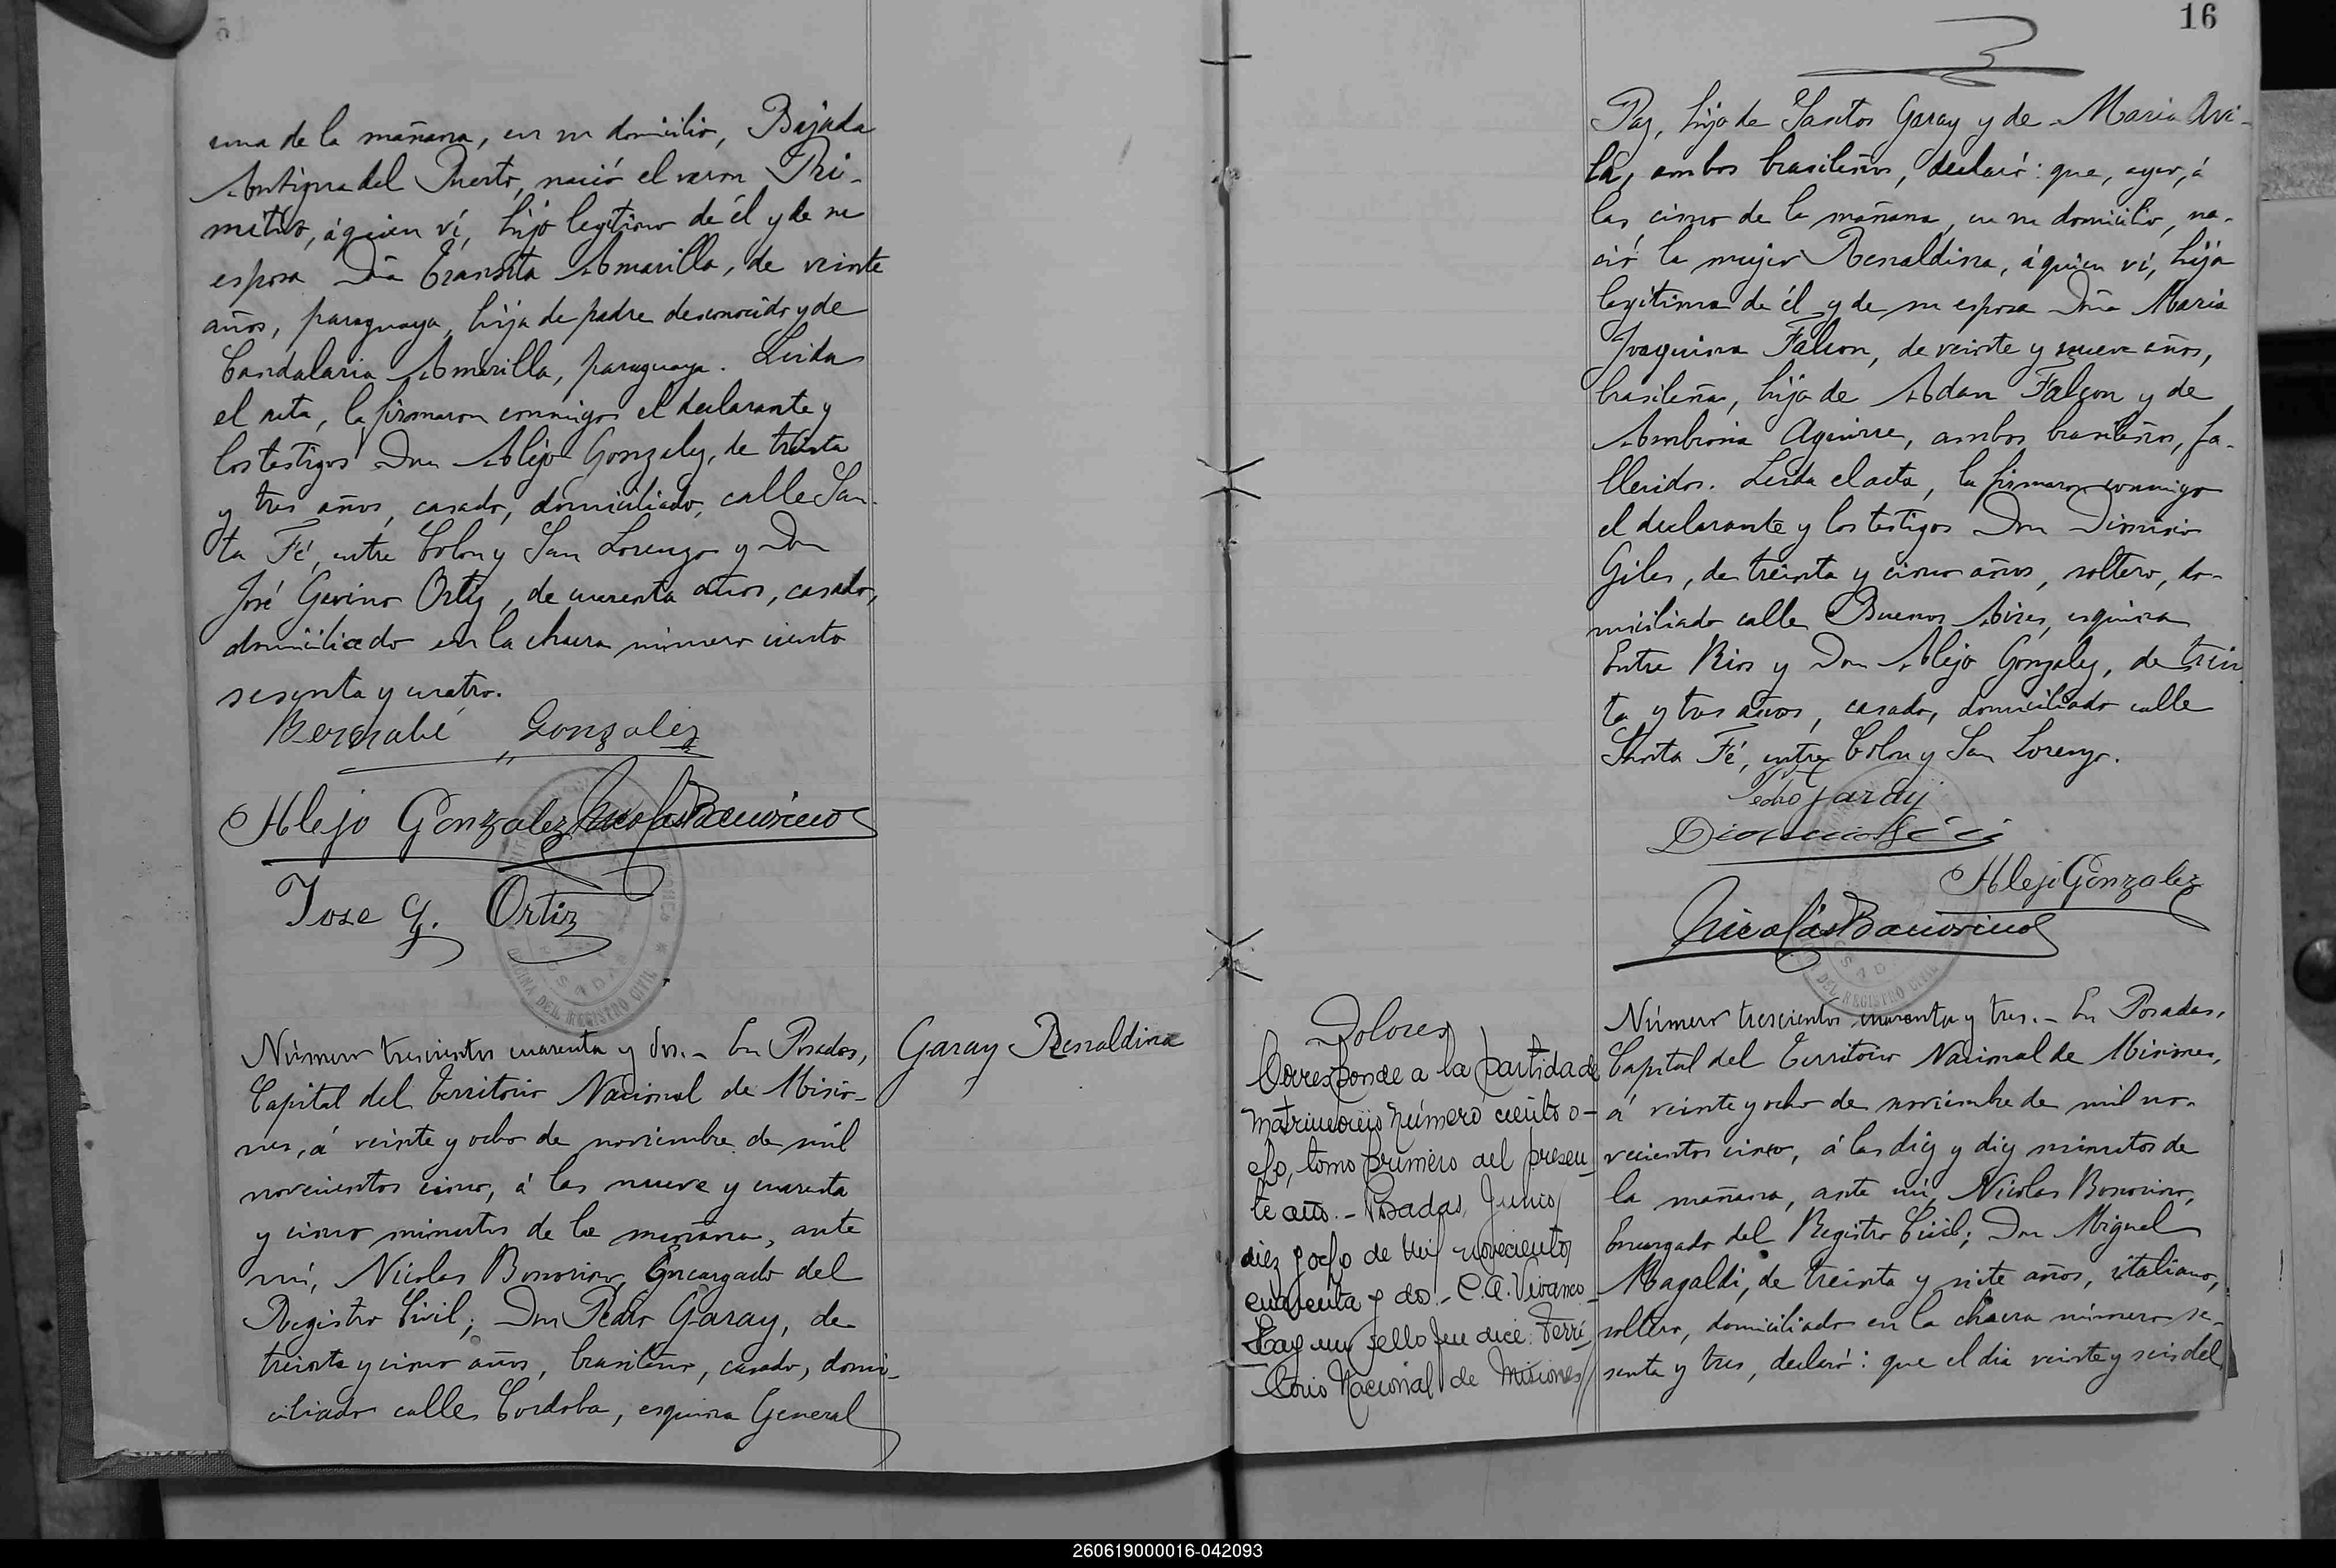 una de la mañana, en su domicilio, Bajada
Antigua del Puerto, nació el varon Pri-
mitivo, á quien ví, hijo legítimo de él y de su
esposa Dña Transita Amarilla, de veinte
años, paraguaya, hija de padre desconocido y de
Candalaria Amarilla, paraguaya. Leida
el acta, la firmaron conmigo el declarante y
los testigos Don Alejo Gonzalez, de treinta
y tres años, casado, domiciliado, calle San-
ta Fé, entre Colon y San Lorenzo y Don
José Gavino Ortiz, de cuarenta años, casado,
domiciliado en la chacra número ciento
sesenta y cuatro.
Bernabé Gonzalez
Alejo Gonzalez Nicolás Bonorino
Jose G. Ortiz
Número trescientos cuarenta y dos. - En Posadas,
Capital del Territorio Nacional de Misio-
nes, á veinte y ocho de noviembre de mil
novecientos cinco, á las nueve y cuarenta
y cinco minutos de la mañana, ante
mí, Nicolas Bonorino, Encargado del
Registro Civil; Don Pedro Garay, de
treinta y cinco años, brasileño, casado, domi-
ciliado calles Cordoba, esquina General
Garay Renaldina
16
Paz, hijo de Santos Garay y de Maria Avi-
la, ambos brasileños, declaró: que, ayer, á
las cinco de la mañana, en su domicilio, na-
ció la mujer Renaldina, á quien ví, hija
legítima de él y de su esposa Dña Maria
Joaquina Falcon, de veinte y nueve años,
brasileña, hija de Adan Falcon y de
Ambrosia Aguirre, ambos brasileños, fa-
llecidos. Leida el acta, la firmaron conmigo
el declarante y los testigos Don Dionisio
Giles, de treinta y cinco años, soltero, do-
miciliado calle Buenos Aires, esquina
Entre Rios y Don Alejo Gonzalez, de trein
ta y tres años, casado, domiciliado calle
Santa Fé, entre Colon y San Lorenzo.
Pedro Garay
Dionicio
Alejo Gonzalez
Nicolás Bonorino
Dolores
Corresponde a la partida de
matrimonio número ciento o-
cho, tomo primero del presen-
te año. - Posadas, Junio
diez y ocho de mil novecientos
cuarenta y dos. - C.A. Vivanco -
Hay un sello que dice: Terri
torio Nacional de Misiones
Número trescientos cuarenta y tres. - En Posadas,
Capital del Territorio Nacional de Misiones,
á veinte y ocho de noviembre de mil no-
vecientos cinco, á las diez y diez minutos de
la mañana, ante mí, Nicolas Bonorino,
Encargado del Registro Civil; Don Miguel
Magaldi, de treinta y siete años, italiano,
soltero, domiciliado en la chacra número se-
senta y tres, declaró: que el dia veinte y seis del
260619000016-042093